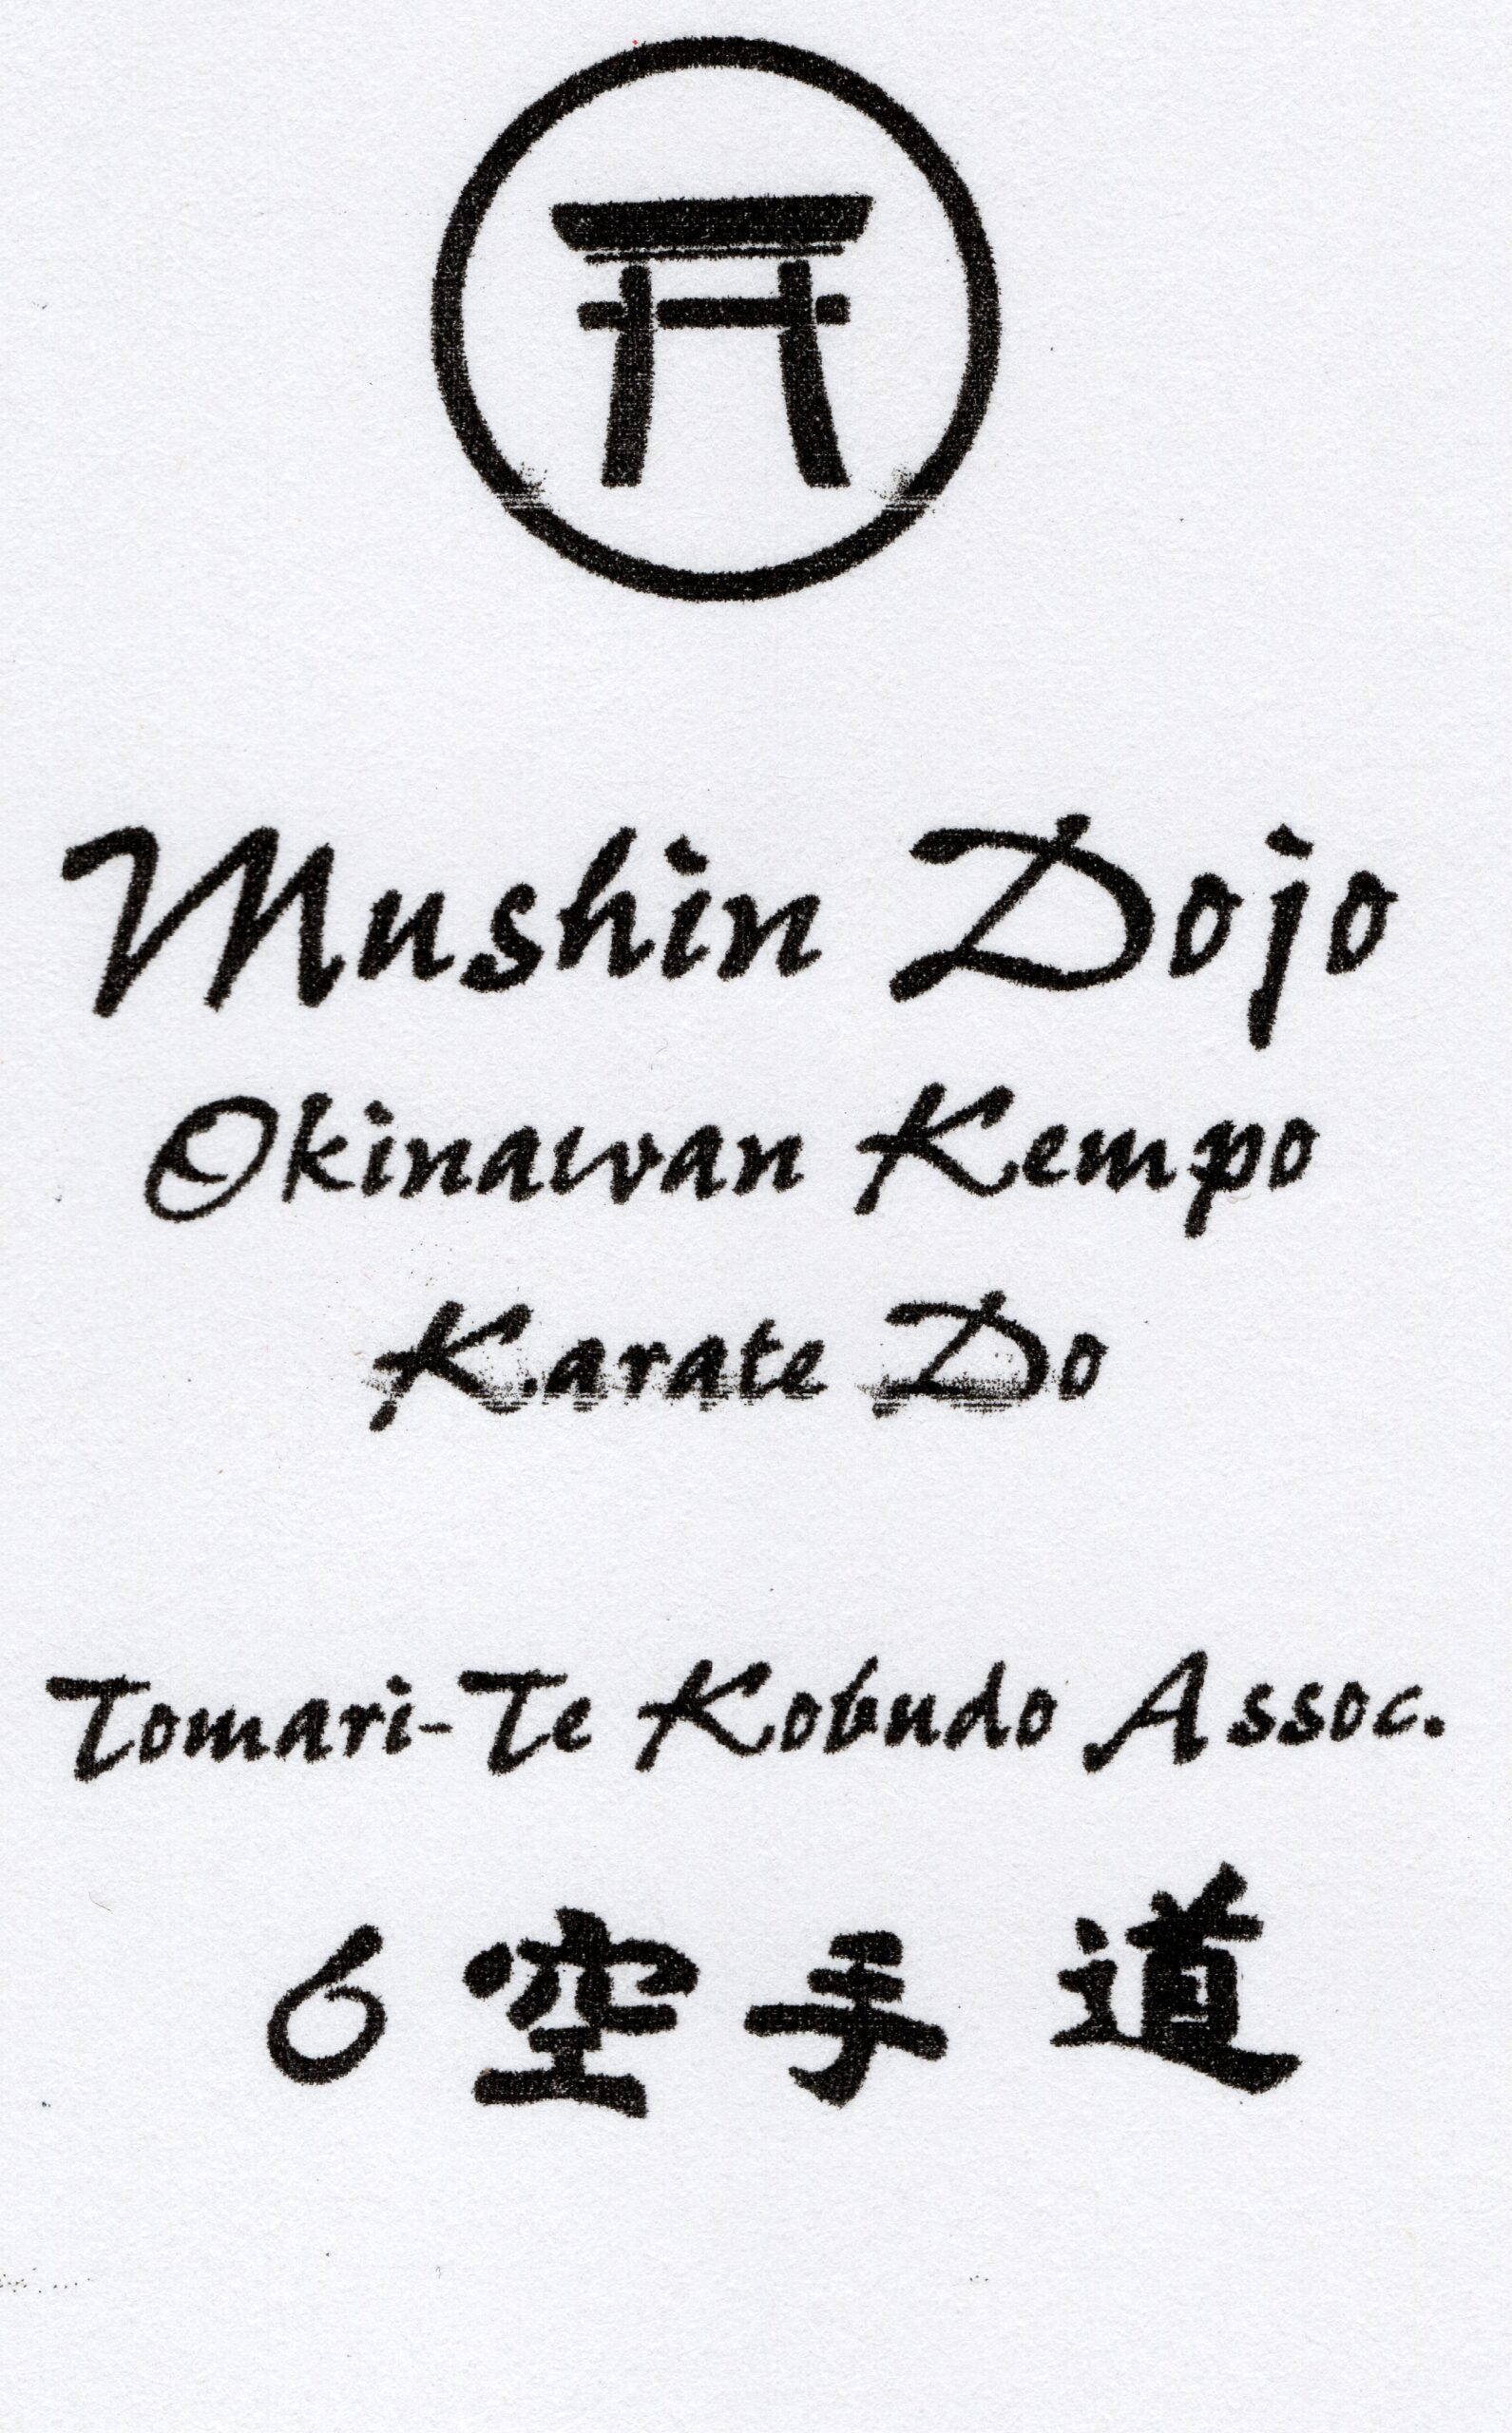 Mushin Dojo
Okinawan Kempo
Karate Do
Tomari-Te Kobudo Assoc.
6 空手道